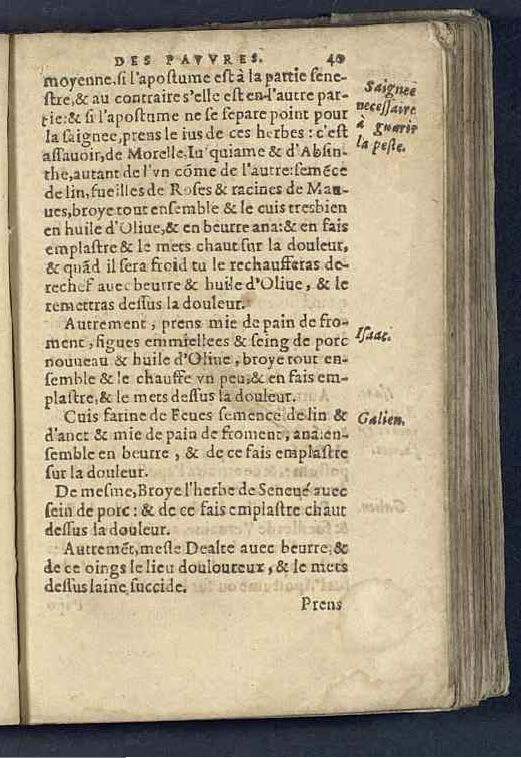 DES PAVVRES. 40
moyenne, si l'apostume est à la partie sene-
stre, & au contraire s'elle est en l'autre par-
tie: & si l'apostume ne se separe point pour
la saignee, prens le ius de ces herbes: c'est
assauoir, de Morelle, Iu quiame & d'Absin-
the, autant de l'vn cõme de l'autre: semẽce
de lin, fueilles de Roses & racines de Mau-
ues, broye tout ensemble & le cuis tresbien
en huile d'Oliue, & en beurre ana: & en fais
emplastre & le mets chaut sur la douleur,
& quãd il sera froid tu le rechaufferas de-
rechef auec beurre & huile d'Oliue, & le
remettras dessus la douleur.
Autrement, prens mie de pain de fro-
ment, figues emmiellees & seing de porc
nouueau & huile d'Oliue, broye tout en-
semble & le chauffe vn peu, & en fais em-
plastre, & le mets dessus la douleur.
Cuis farine de Feues semence de lin &
d'anet & mie de pain de froment, ana: en-
semble en beurre, & de ce fais emplastre
sur la douleur.
De mesme, Broye l'herbe de Seneué auec
sein de porc: & de ce fais emplastre chaut
dessus la douleur.
Autremẽt, mesle Dealte auec beurre, &
de ce oings le lieu douloureux, & le mets
dessus laine succide.
Prens
Saignee
necessaire
à guarir
la peste.
Isaac.
Galien.